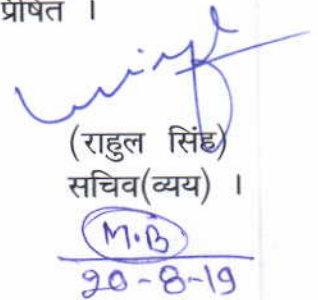 प्रेषित ।
(राहुल सिंह)
सचिव(व्यय) ।
M.B
20-8-19